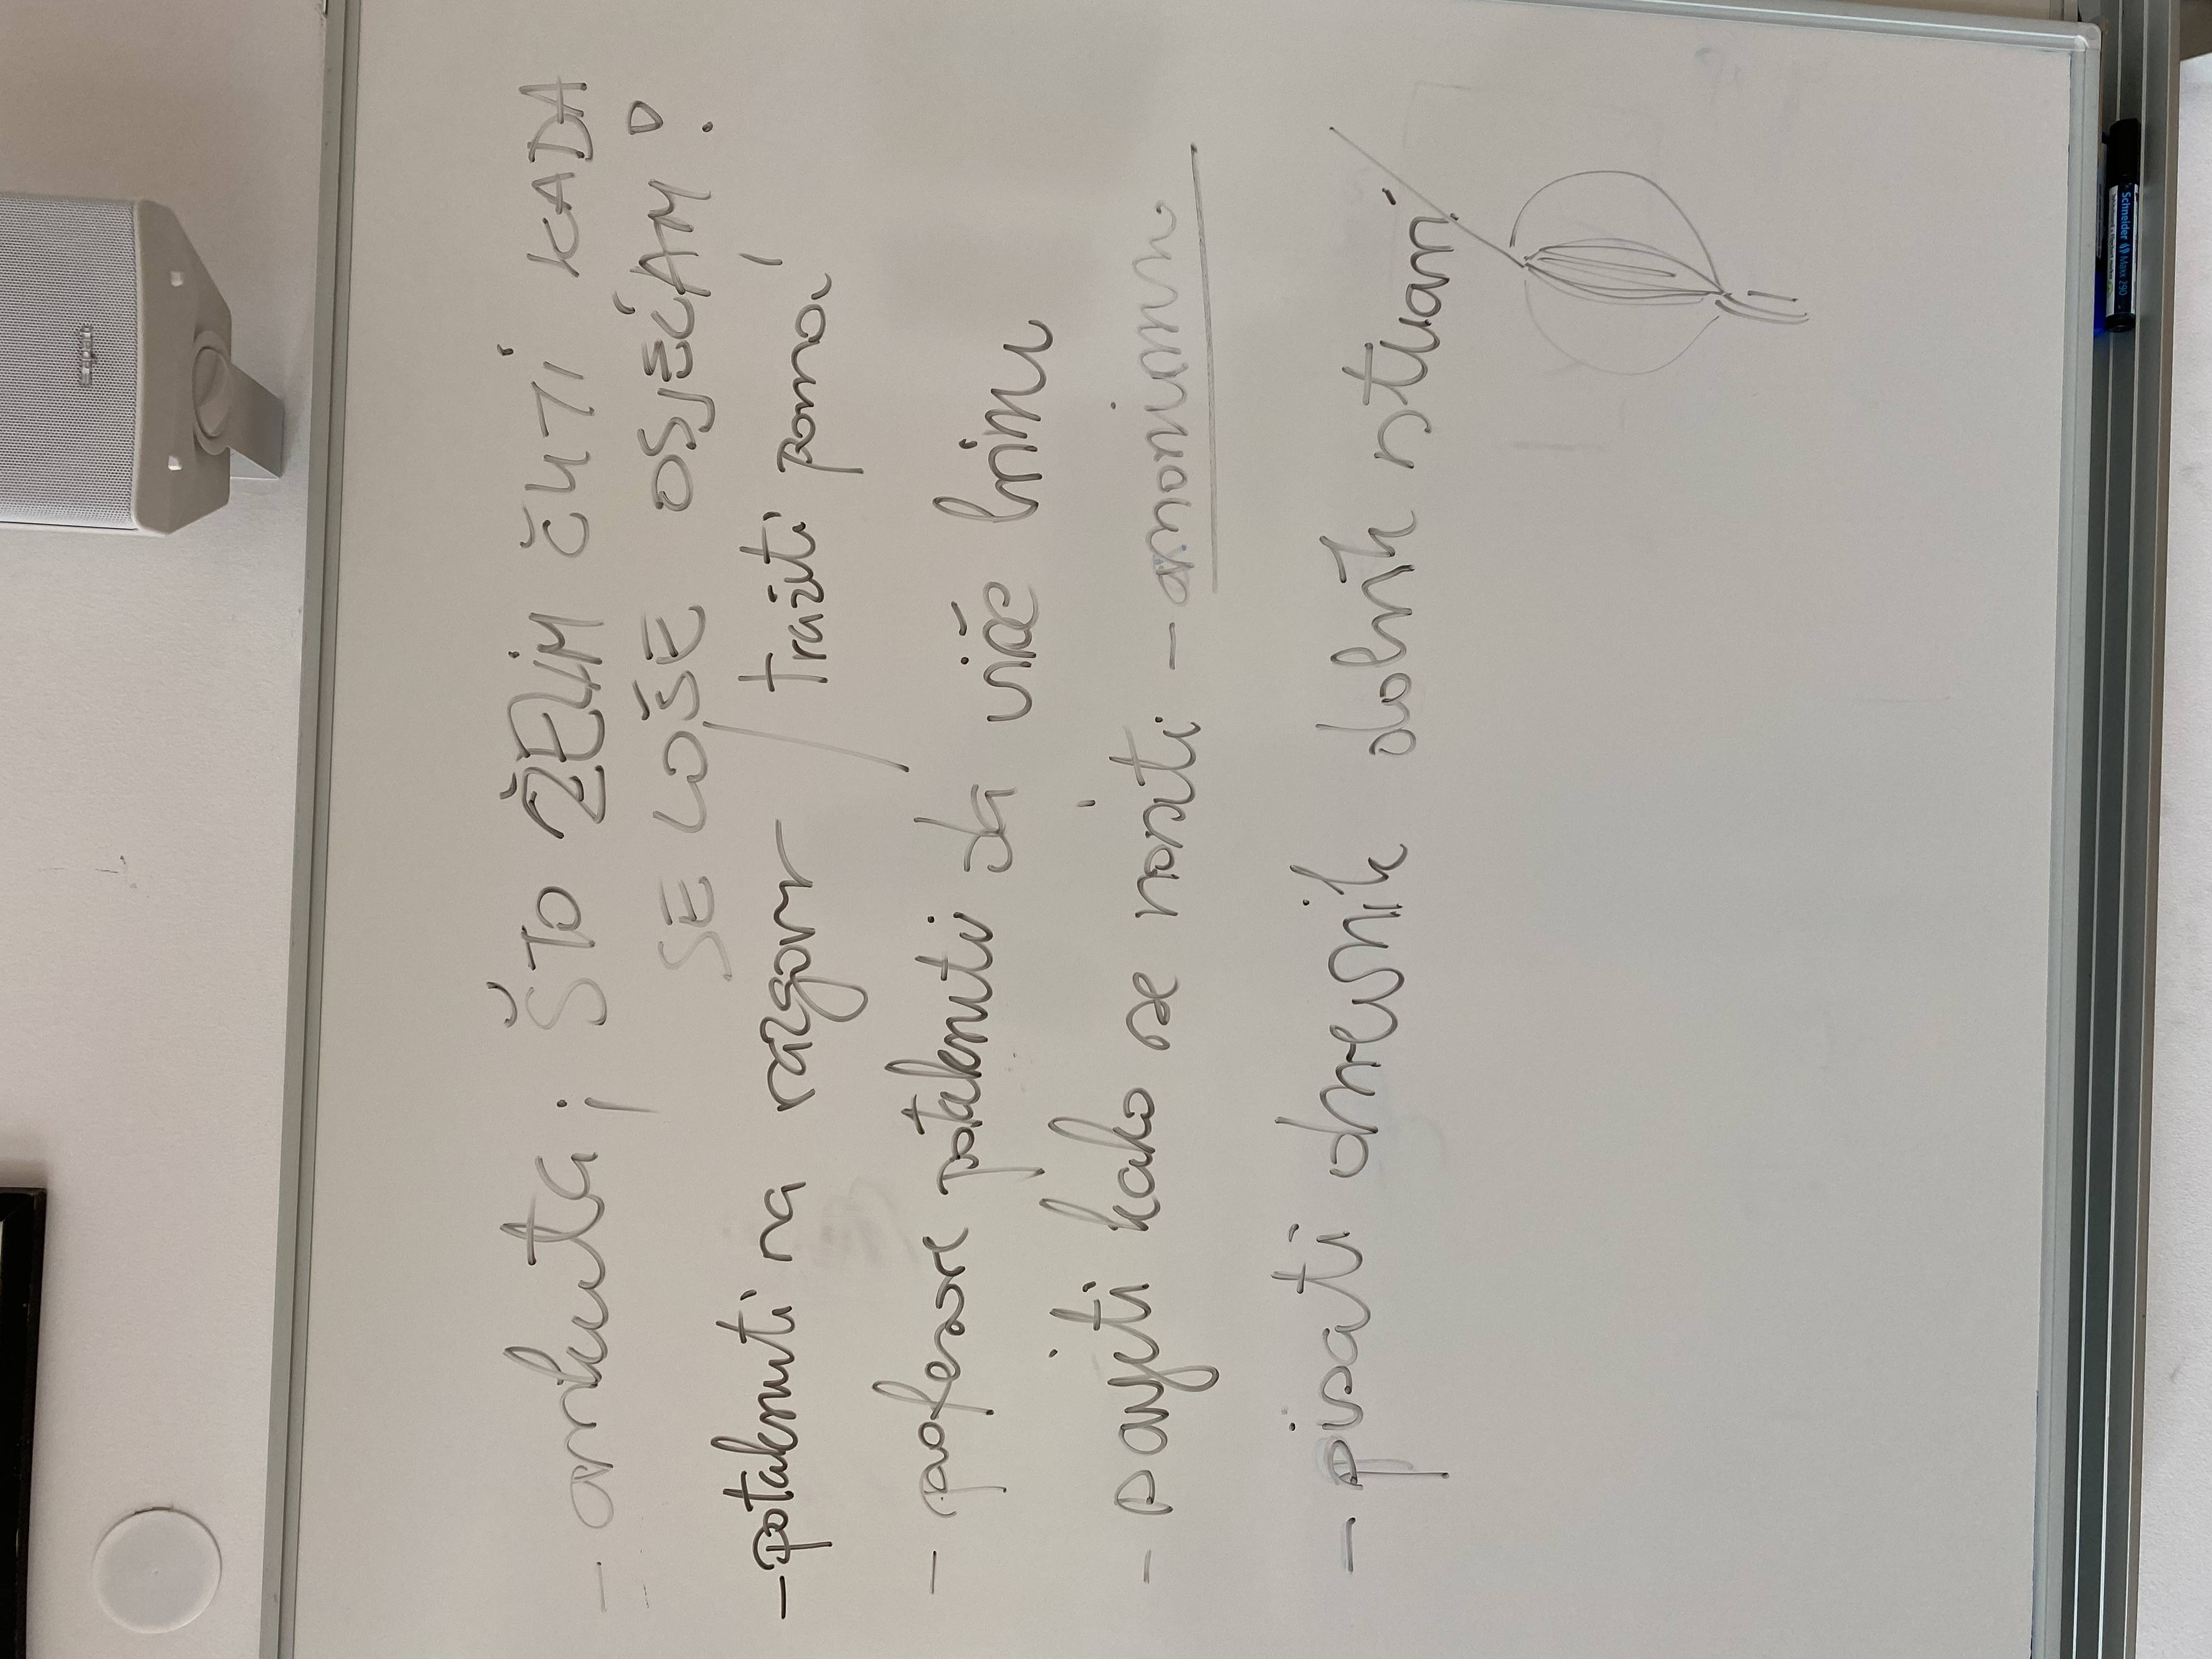 - anketa; ŠTO ŽELIM ČUTI KADA
SE LOŠE OSJEĆAM?
- potaknuti na razgovor / tražiti pomoć
- profesore potaknuti da više brinu
- savjeti kako se nositi - anonimno
- pisati dnevnik dobrih stvari
Schneider Maxx 290